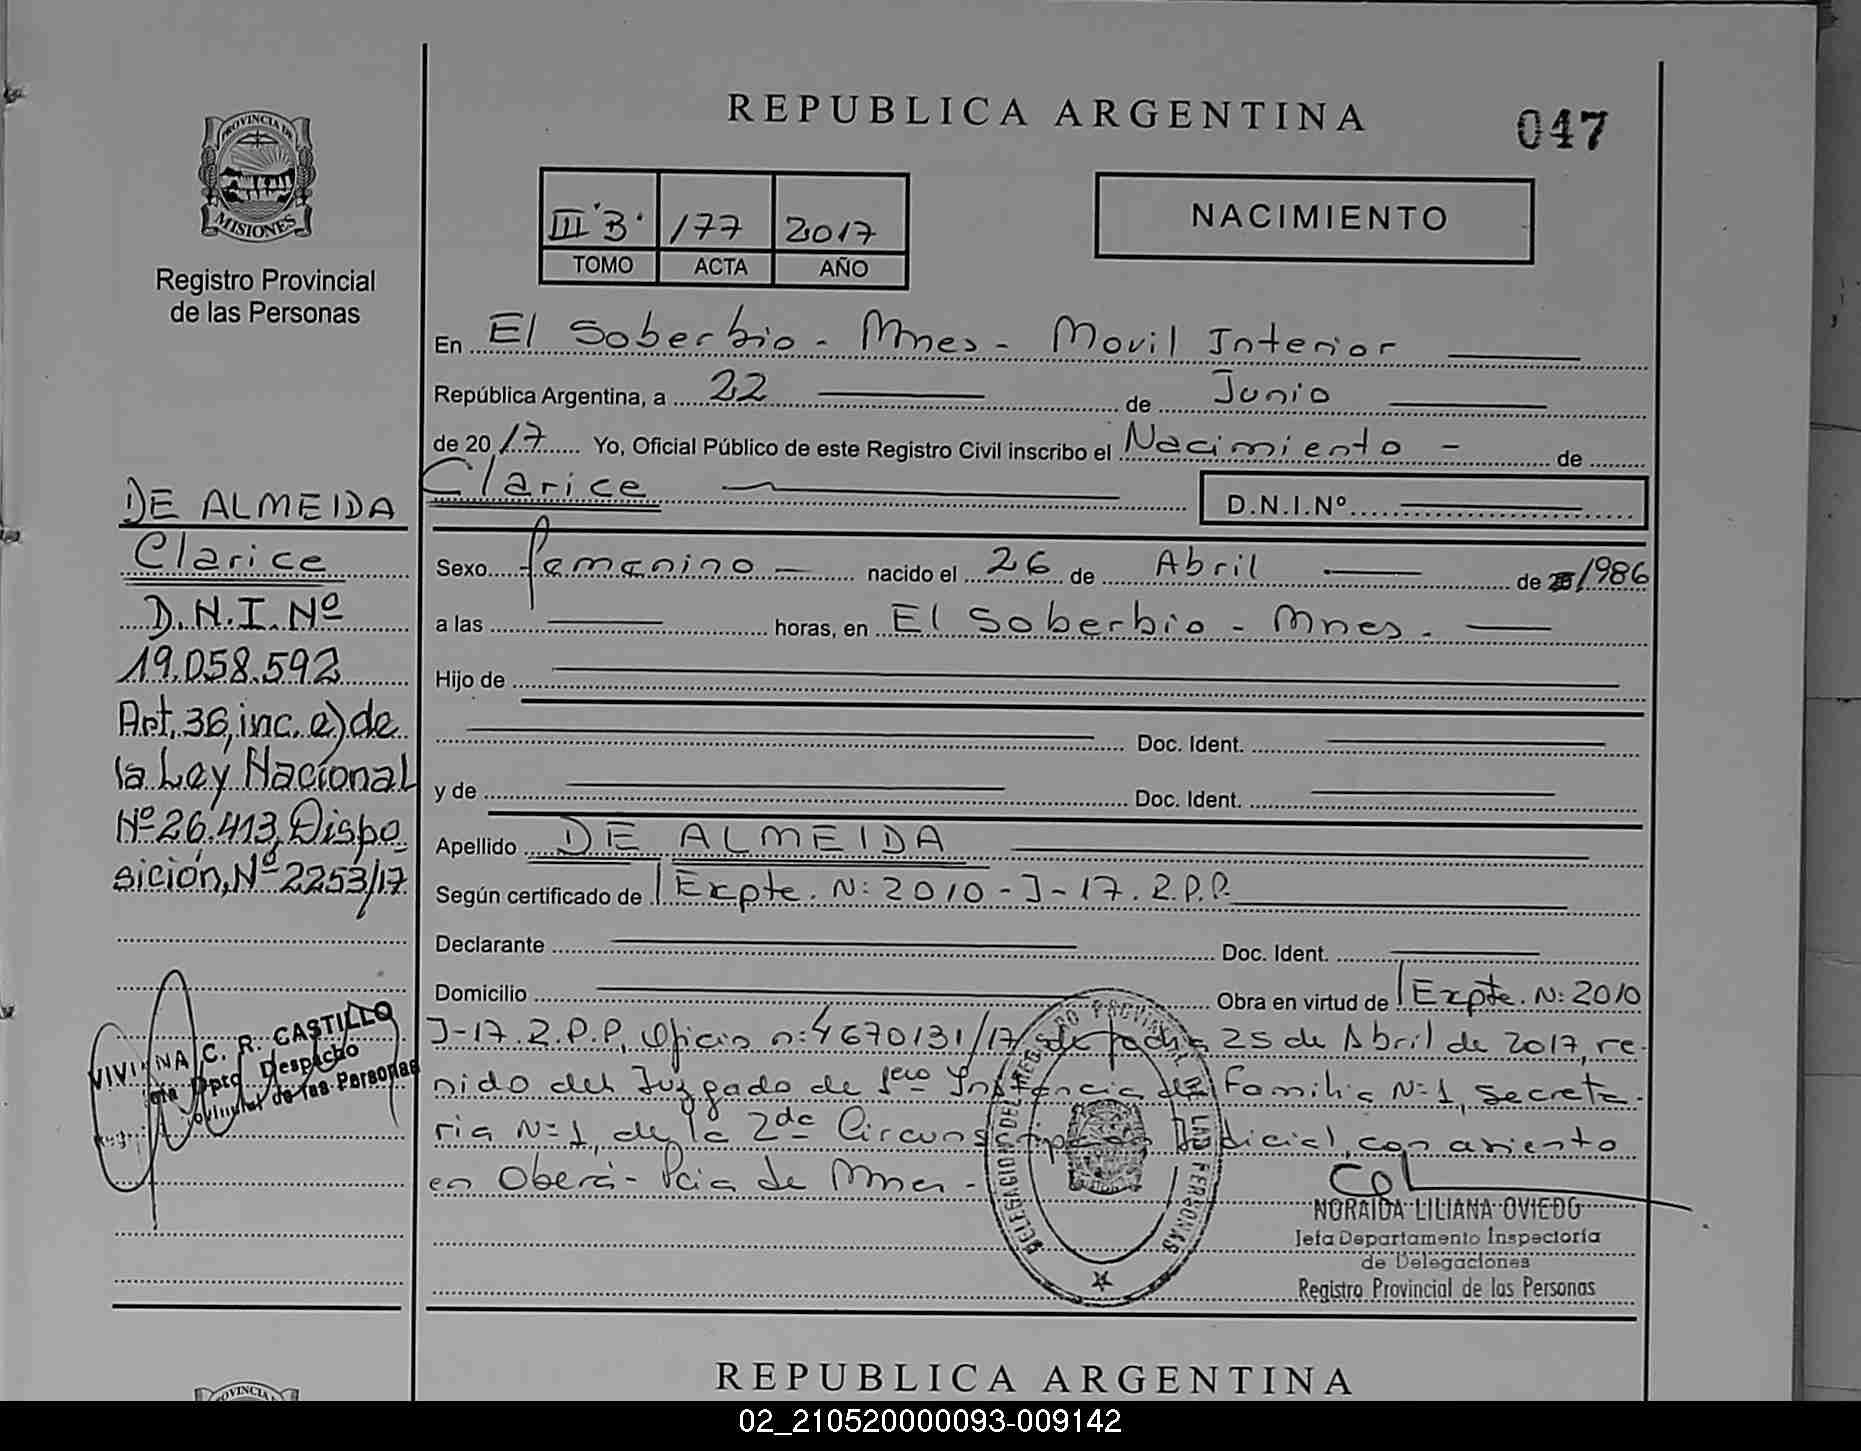 REPUBLICA ARGENTINA
047
PROVINCIA DE
MISIONES
Registro Provincial
de las Personas
III "B" 177 2017
TOMO ACTA AÑO
NACIMIENTO
En El Soberbio - Mnes - Movil Interior
República Argentina, a 22 de Junio
de 2017 Yo, Oficial Público de este Registro Civil inscribo el Nacimiento - de
Clarice
D.N.I.Nº
Sexo femenino nacido el 26 de Abril de 1986
a las horas, en El Soberbio - Mnes.
Hijo de
Doc. Ident.
y de Doc. Ident.
Apellido DE ALMEIDA
Según certificado de Expte. N: 2010-J-17. R.P.P.
Declarante Doc. Ident.
Domicilio Obra en virtud de Expte. N: 2010
J-17. R.P.P, Oficio n: 4670131/17 de fecha 25 de Abril de 2017, re-
nido del Juzgado de 1era Instancia de Familia N=1, Secreta-
ria N=1, de la 2da Circunscripcion Judicial, con asiento
en Oberá - Pcia de Mnes -
DE ALMEIDA
Clarice
D.N.I. Nº
19.058.592
Art. 36, inc. e) de
la Ley Nacional
Nº 26.413, Dispo
sición, Nº 2253/17
VIVIANA C. R. CASTILLO
Dpto Despacho
de las Personas
DE LAS PERSONAS
NORAIDA LILIANA OVIEDO
Jefa Departamento Inspectoría
de Delegaciones
Registro Provincial de las Personas
REPUBLICA ARGENTINA
02_210520000093-009142